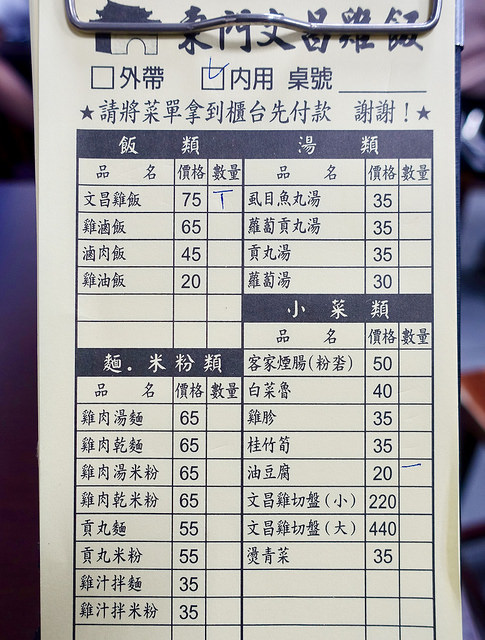 東門文昌雞飯
□外帶 □内用 桌號
★請將菜單拿到櫃台先付款 謝謝！★
飯 類
品 名 價格 數量
文昌雞飯 75 T
雞滷飯 65
滷肉飯 45
雞油飯 20
麵．米粉類
品 名 價格 數量
雞肉湯麵 65
雞肉乾麵 65
雞肉湯米粉 65
雞肉乾米粉 65
貢丸麵 55
貢丸米粉 55
雞汁拌麵 35
雞汁拌米粉 35
湯 類
品 名 價格 數量
虱目魚丸湯 35
蘿蔔貢丸湯 35
貢丸湯 35
蘿蔔湯 30
小 菜 類
品 名 價格 數量
客家煙腸(粉砻) 50
白菜魯 40
雞胗 35
桂竹筍 35
油豆腐 20 一
文昌雞切盤(小) 220
文昌雞切盤(大) 440
燙青菜 35